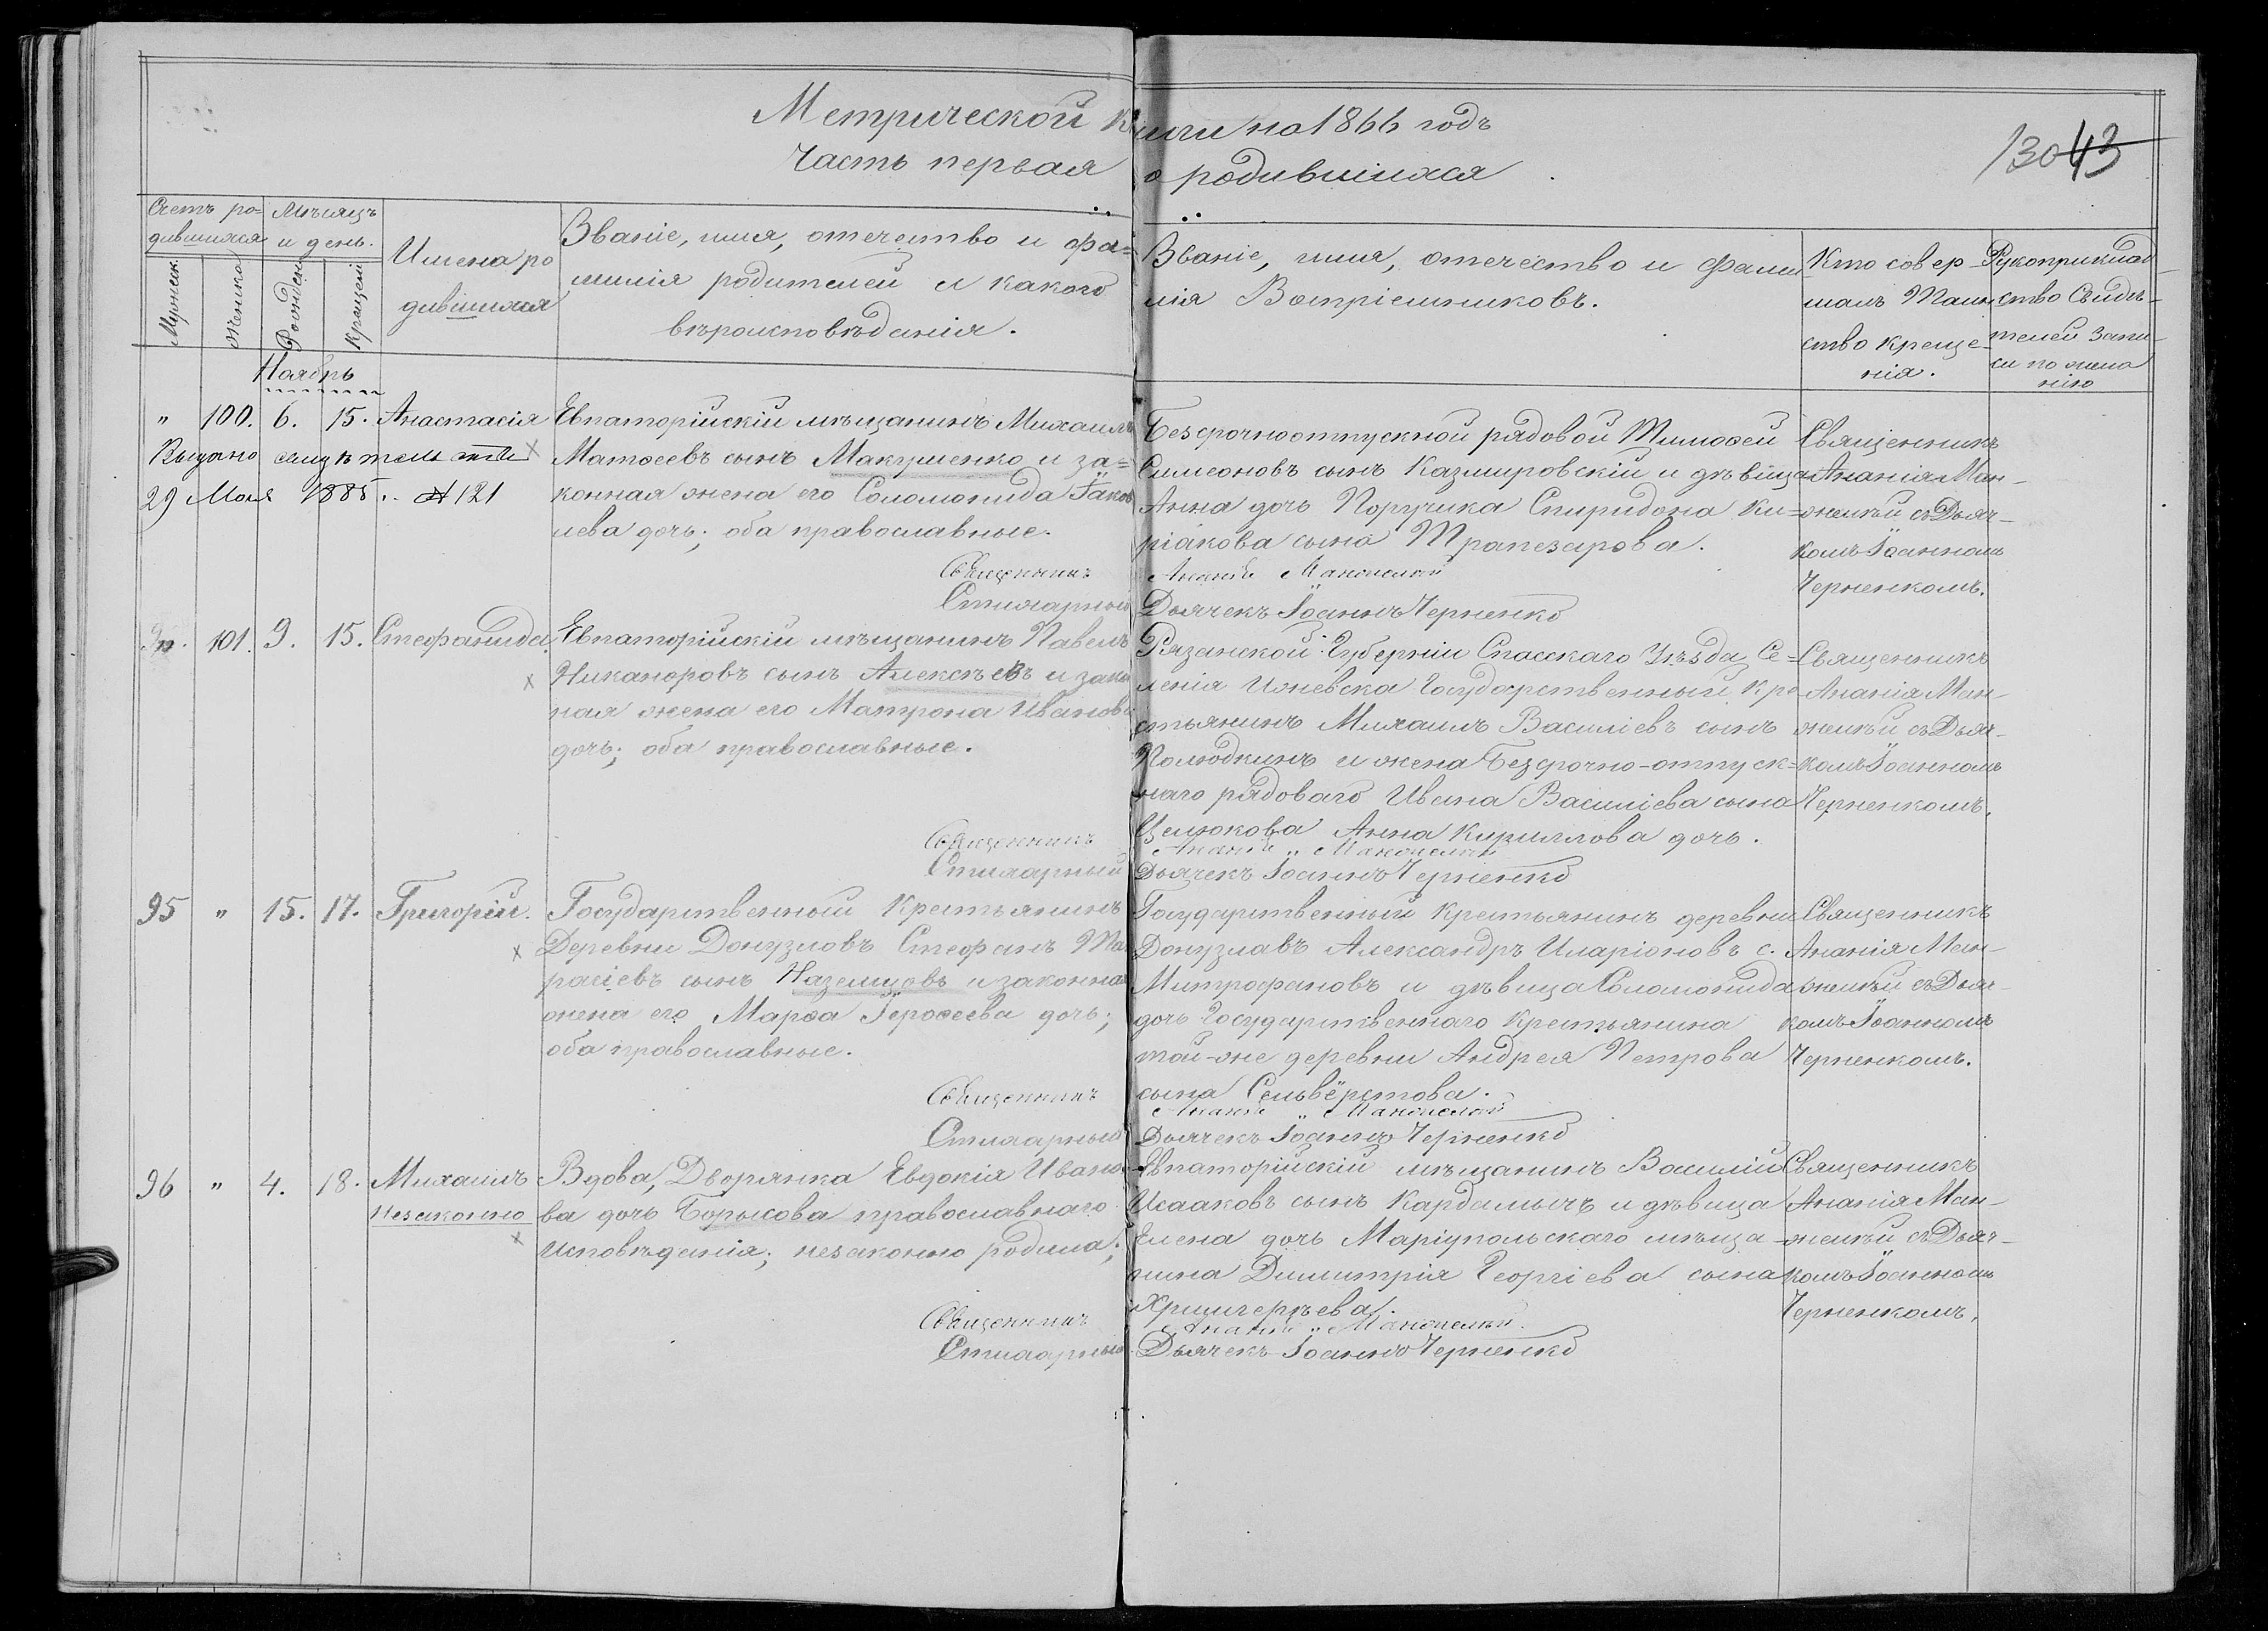 Метрической книги на 1866 годъ
Часть первая о родившихся
130 43
Счетъ ро-
дившихся
Мѣсяцъ
и день.
Мужеск.
Женска
Рожден
Крещені
Имена ро
дившихся
Званіе, имя, отечество и фа=
милія родителей и какого
вѣроисповѣданія.
Званіе, имя, отечество и фами
лія Воспріемниковъ.
Кто совер-
шалъ Таин
ство креще-
нія.
Рукоприклад
ство Свидѣ-
телей запи-
си по жела
нію
Ноябрь
" 100. 6. 15. Анастасія
Выдано свидѣтельство
29 Мая 1885. № 121
Евпаторійскій мѣщанинъ Михаилъ
Матѳеевъ сынъ Макушенко и за=
конная жена его Соломонида Іаков
лева дочь; оба православные.
Священникъ
Стихарный
Безсрочноотпускной рядовой Тимоѳей
Симеоновъ сынъ Казмировскій и дѣвица
Анна дочь Поручика Спиридона Ки=
ріакова сына Трапезарова.
Ананій Манжелѣй
Дьячекъ Іоаннъ Черненко
Священникъ
Ананія Ман-
желѣй съ Дьяч-
комъ Іоанномъ
Черненкомъ.
101. 9. 15. Стефанида
Евпаторійскій мѣщанинъ Павелъ
Никаноровъ сынъ Алексѣевъ и закон
ная жена его Матрона Иванова
дочь; оба православные.
Священникъ
Стихарный
Рязанской Губерніи Спасскаго Уѣзда Се=
ленія Ижевска Государственный Кре
стьянинъ Михаилъ Василіевъ сынъ
Полюдкинъ и жена Безсрочно-отпуск=
наго рядоваго Ивана Василіева сына
Целюкова Анна Кириллова дочь.
Ананій Манжелѣй
Дьячекъ Іоаннъ Черненко
Священникъ
Ананія Ман-
желѣй съ Дьяч-
комъ Іоанномъ
Черненкомъ.
95 " 15. 17. Григорій.
Государственный Крестьянинъ
Деревни Донузлавъ Стефанъ Та
расіевъ сынъ Наземцовъ и законная
жена его Марѳа Іероѳеева дочь;
оба православные.
Священникъ
Стихарный
Государственный Крестьянинъ деревни
Донузлавъ Александръ Иларіоновъ с.
Митрофановъ и дѣвица Соломонида
дочь Государственнаго Крестьянина
той-же деревни Андрея Петрова
сына Сельвёрстова.
Ананій Манжелѣй
Дьячекъ Іоаннъ Черненко
Священникъ
Ананія Ман-
желѣй съ Дьяч-
комъ Іоанномъ
Черненкомъ.
96 " 4. 18. Михаилъ
Незаконно
Вдова, Дворянка Евдокія Ивано-
ва дочь Борысова православнаго
Исповѣданія; незаконно родила;
Священникъ
Стихарный
Евпаторійскій мѣщанинъ Василій
Исааковъ сынъ Кардамычъ и дѣвица
Елена дочь Маріупольскаго мѣща-
нина Димитрія Георгіева сына
Ананій Манжелѣй
Дьячекъ Іоаннъ Черненко
Священникъ
Ананія Ман-
желѣй съ Дьяч-
комъ Іоанномъ
Черненкомъ.